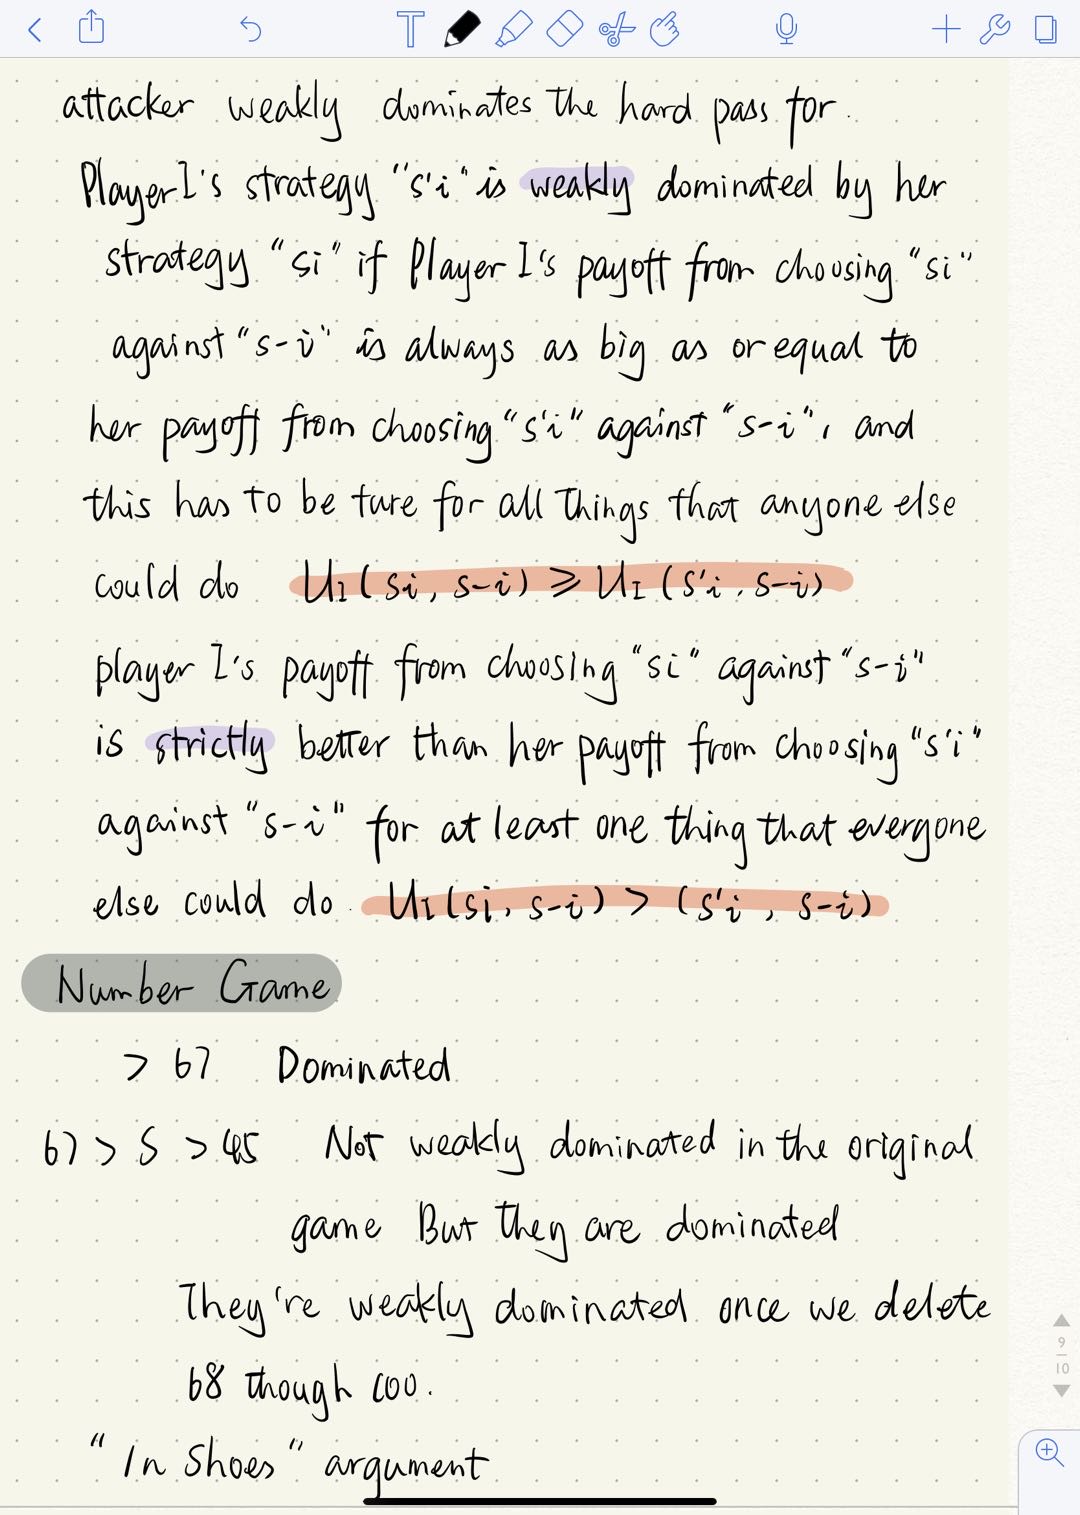 attacker weakly dominates the hard pass for.
Player I's strategy "s'i" is weakly dominated by her
strategy "si" if Player I's payoff from choosing "si"
against "s-i" is always as big as or equal to
her payoff from choosing "s'i" against "s-i", and
this has to be ture for all things that anyone else
could do UI(si, s-i) ⩾ UI(s'i, s-i)
player I's payoff from choosing "si" against "s-i"
is strictly better than her payoff from choosing "s'i"
against "s-i" for at least one thing that everyone
else could do. UI(si, s-i) > (s'i, s-i)
Number Game
> 67 Dominated
67 > S > 45 Not weakly dominated in the original
game But they are dominated
They're weakly dominated once we delete
68 though 100.
"In Shoes" argument
9
10